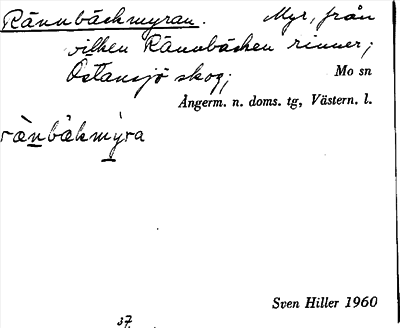 Rännbäckmyran. Myr, från
vilken Rännbäcken rinner;
Östansjö skog; Mo sn
Ångerm. n. doms. tg, Västern. l.
rænbækmýra
Sven Hiller 1960
37.